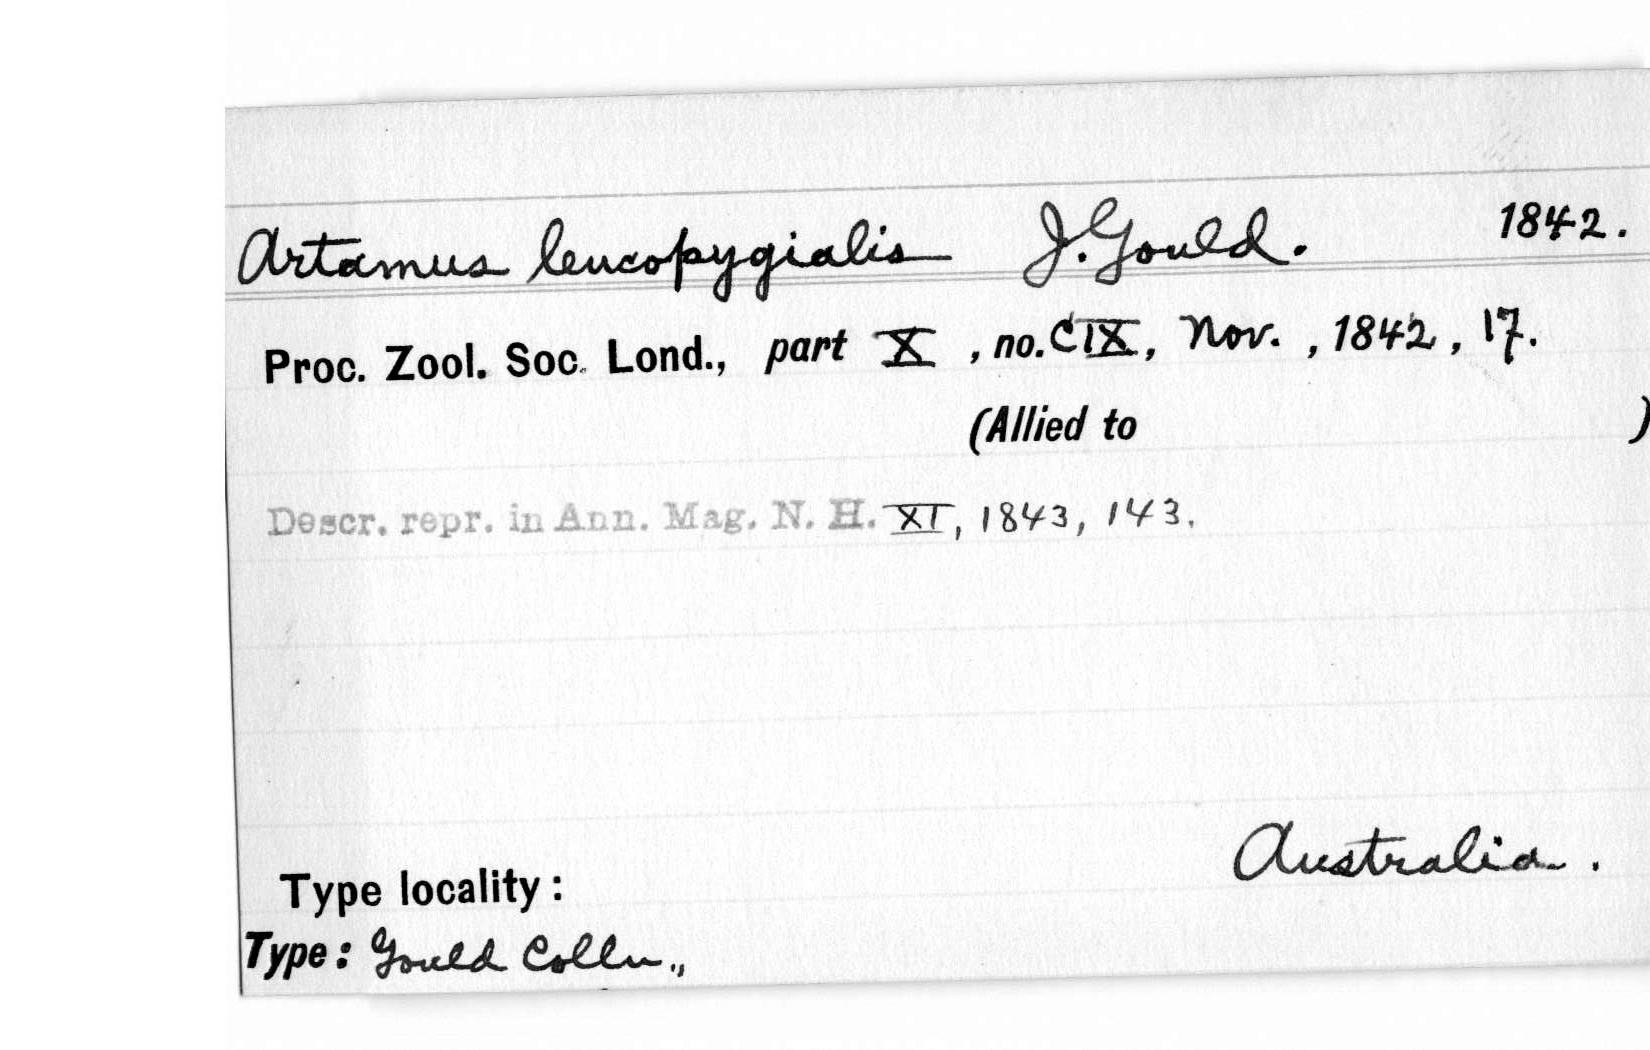 Artamus leucopygialis J. Gould. 1842.
Proc. Zool. Soc. Lond., part X, no. CIX, Nov., 1842, 17.
(Allied to )
Descr. repr. in Ann. Mag. N. H. XI, 1843, 143.
Australia.
Type locality:
Type: Gould Colln.,